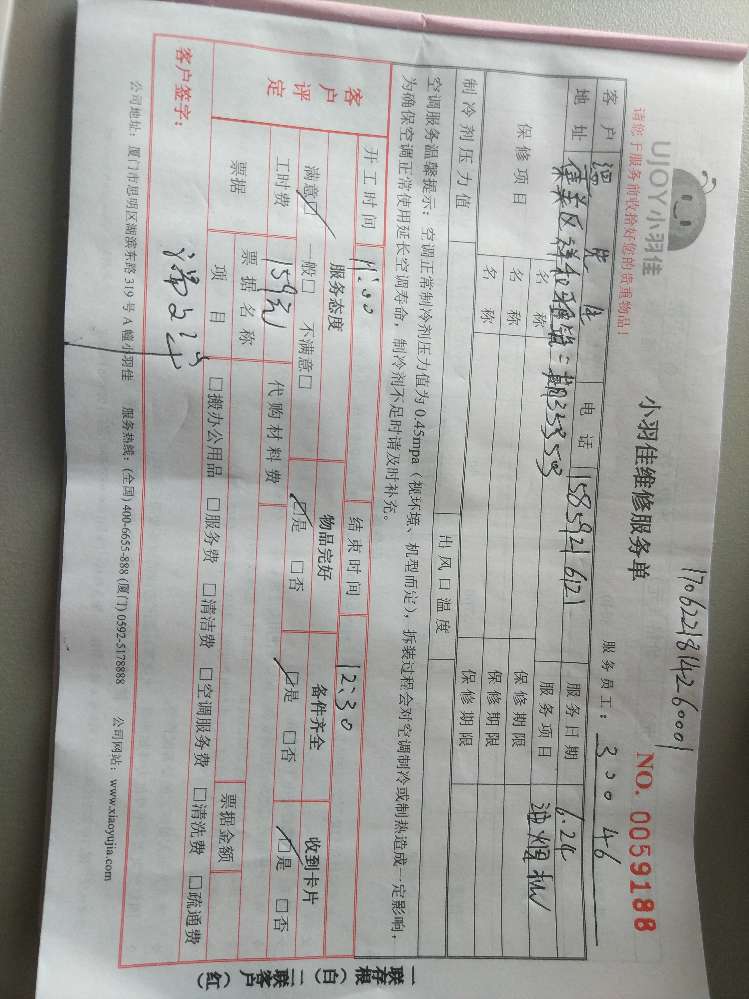 170622181426001
UJOY小羽佳
小羽佳维修服务单
NO. 0059188
请您于服务前收拾好您的贵重物品！
服务员工：30046
客户 先生 电话 15859216121 服务日期 6.24
地址 服务项目 油烟机
保修项目 名称 保修期限
名称 保修期限
名称 保修期限
制冷剂压力值 出风口温度
空调服务温馨提示：空调正常制冷剂压力值为0.45mpa（视环境、机型而定），拆装过程会对空调制冷或制热造成一定影响，
为确保空调正常使用延长空调寿命，制冷剂不足时请及时补充。
开工时间 11:00 结束时间 12:30
客户评定 服务态度 物品完好 备件齐全 收到卡片
满意☑ 一般□ 不满意□ ☑是 □否 ☑是 □否 ☑是 □否
工时费 159元 代购材料费
票据 票据名称 票据金额
项目 □搬办公用品 □服务费 □清洁费 □空调服务费 □清洗费 □疏通费
客户签字：
公司地址：厦门市思明区湖滨东路319号A幢小羽佳 服务热线：(全国) 400-6655-888 (厦门) 0592-5178888 公司网站：www.xiaoyujia.com
一联存根（白）二联客户（红）